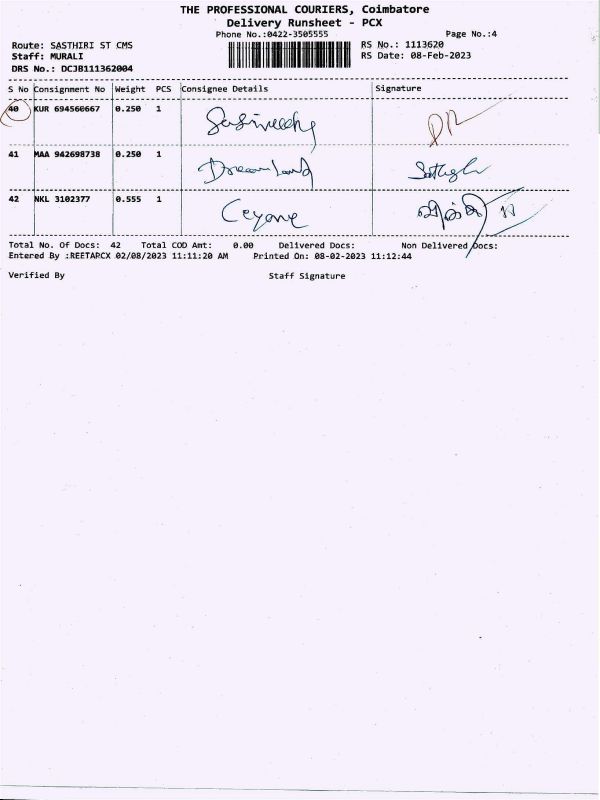 THE PROFESSIONAL COURIERS, Coimbatore
Delivery Runsheet - PCX
Phone No.:0422-3505555
Page No.:4
Route: SASTHIRI ST CMS
RS No.: 1113620
Staff: MURALI
RS Date: 08-Feb-2023
DRS No.: DCJB111362004
S No Consignment No Weight PCS Consignee Details Signature
40 KUR 694560667 0.250 1
41 MAA 942698738 0.250 1 Dreamland
42 NKL 3102377 0.555 1 Ceyone
Total No. Of Docs: 42 Total COD Amt: 0.00 Delivered Docs: Non Delivered Docs:
Entered By :REETAPCX 02/08/2023 11:11:20 AM Printed On: 08-02-2023 11:12:44
Verified By Staff Signature